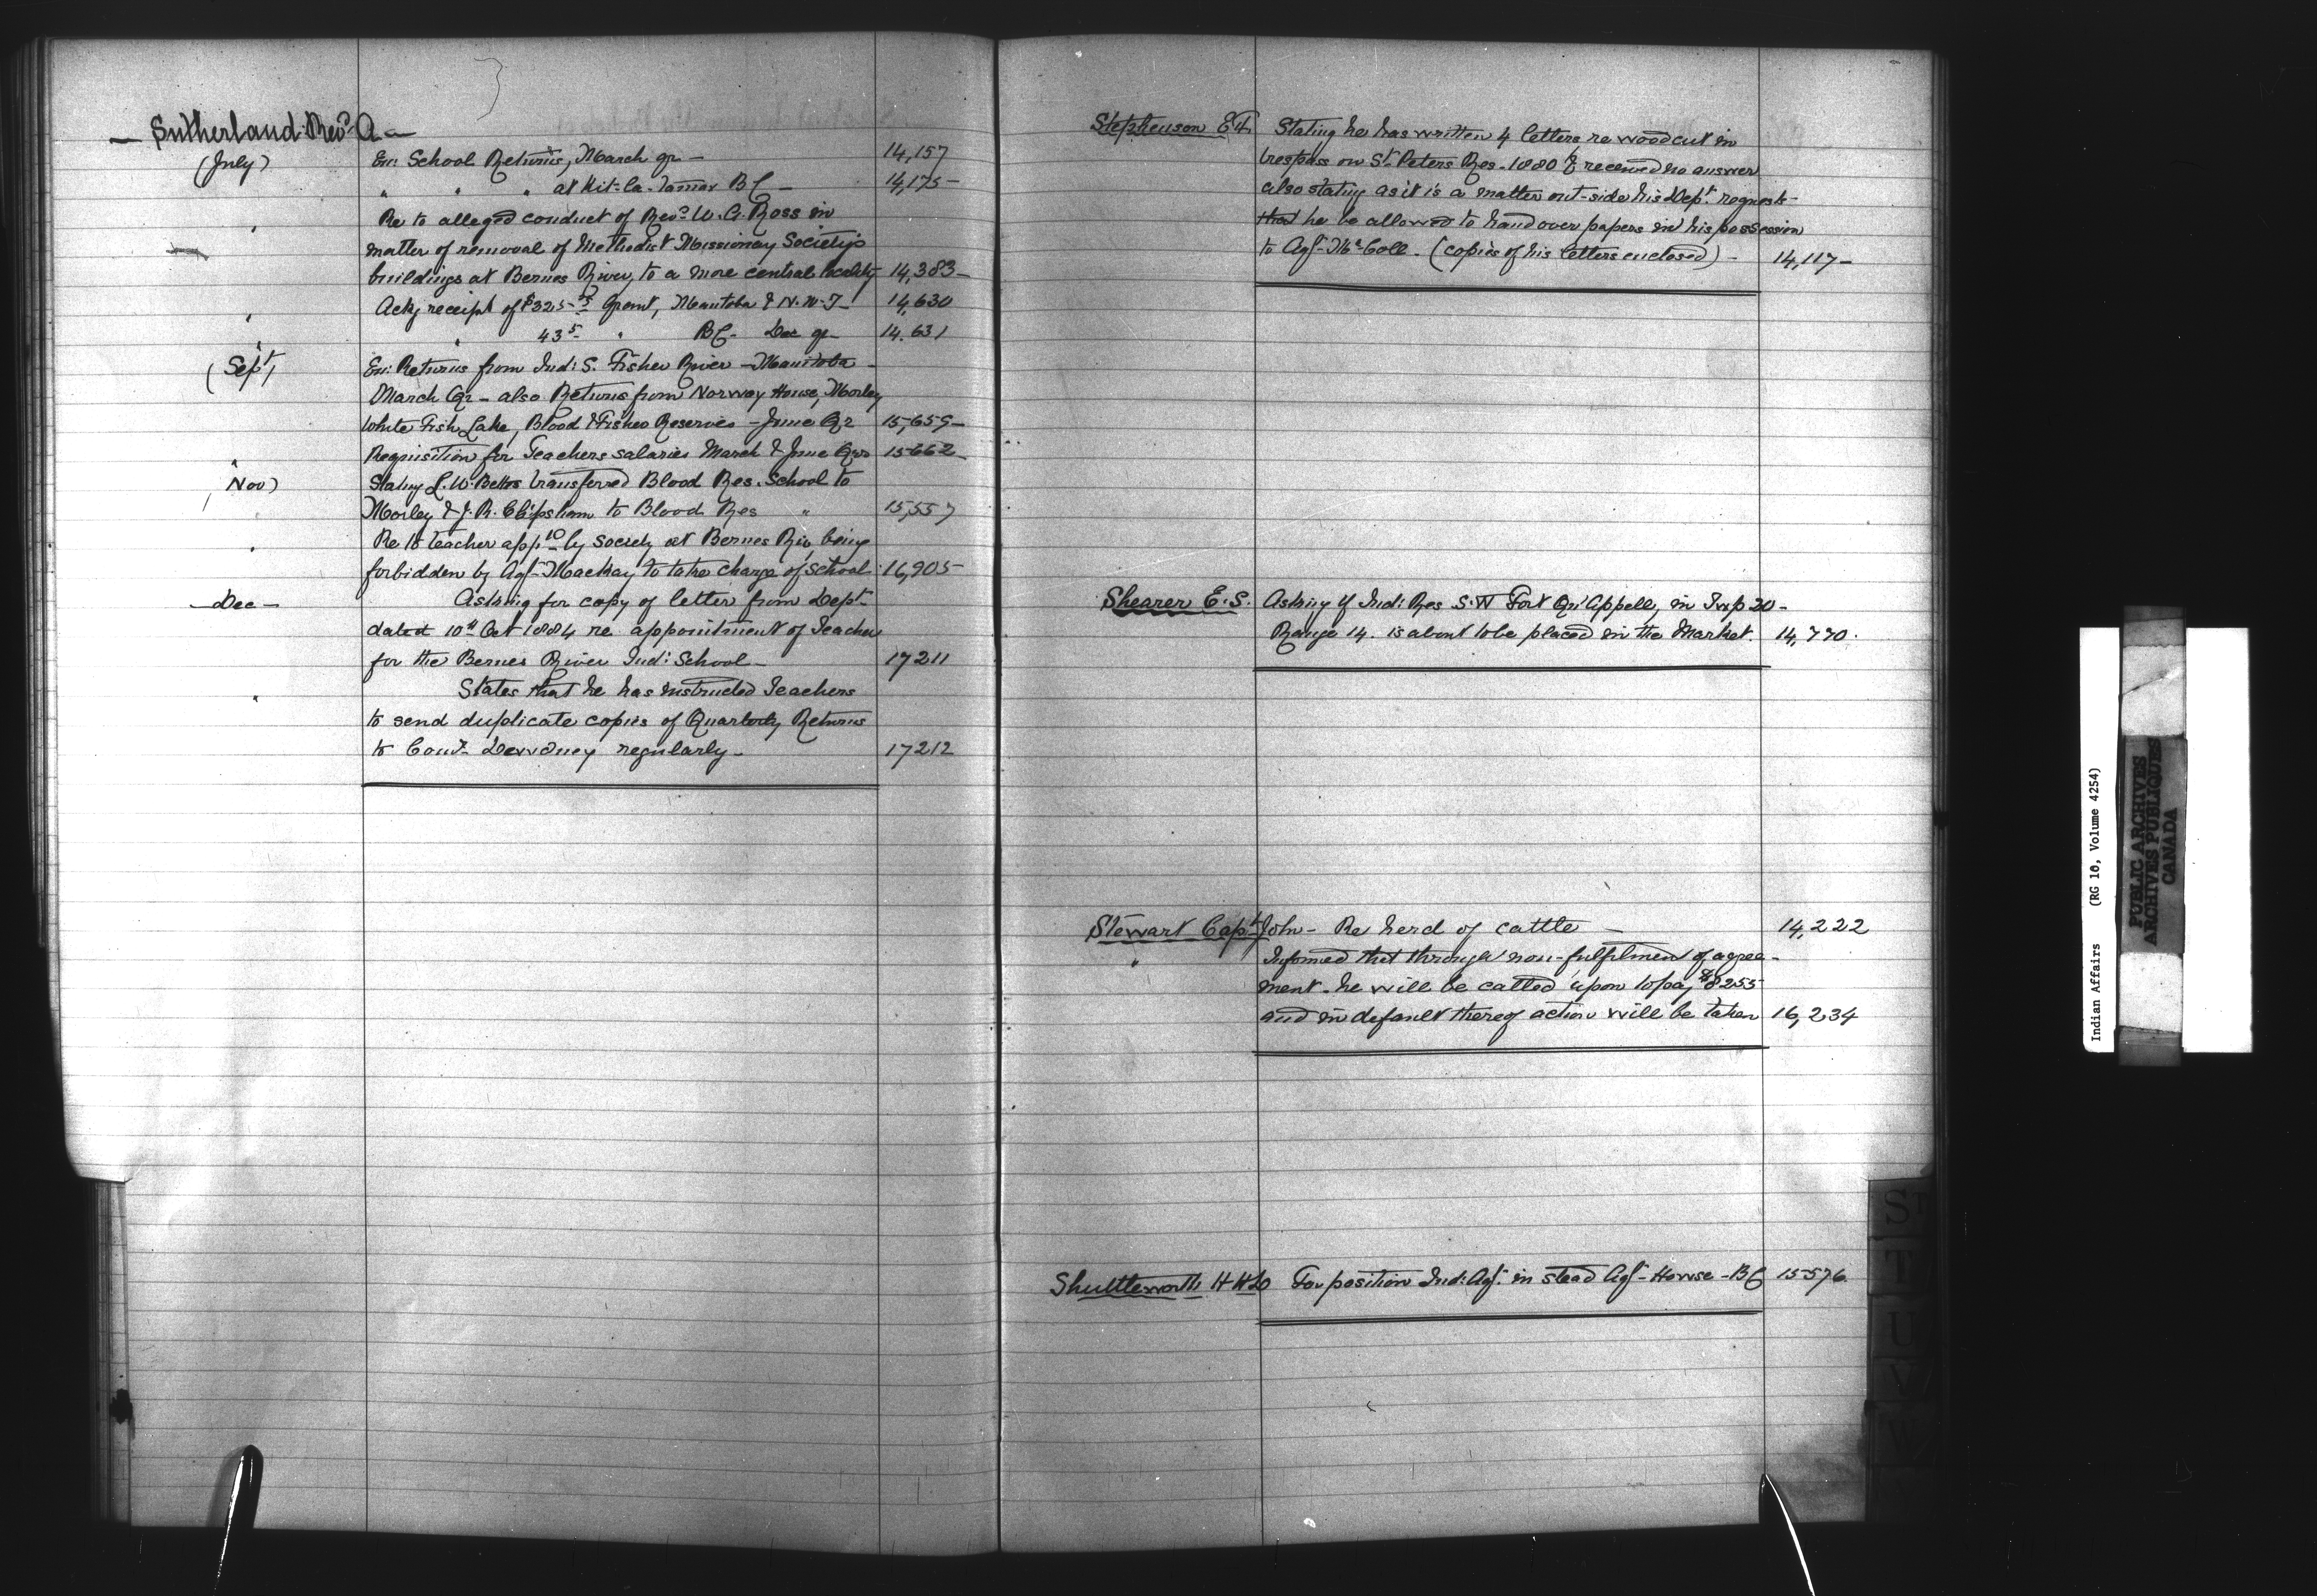 — Sutherland Revd A —
(July) En: School Returns, March qr — 14,157
" " " at Kit-la-tamax BC — 14,175
" Re to alleged conduct of Revd W. G. Ross in
matter of removal of Methodist Missionary Society's
buildings at Bernes River, to a more central locality 14,383
" Ackg receipt of $325 Grant, Manitoba & N.W.T — 14,630
" " 43 5 " BC — Dec qr 14.631
(Sept) En: Returns from Ind: S. Fisher River — Manitoba —
March Qr — also Returns from Norway House, Morley
White Fish Lake, Blood & Fisher Reserves — June Qr 15,659
" Requisition for Teachers salaries March & June Qrs 15662
(Nov) Stating L. W. Betts transferred Blood Res. School to
Morley & J. R. Clipsham to Blood Res " 15,557
" Re to teacher appd by Society at Bernes Riv. being
forbidden by Agt MacKay to take charge of school 16,905
— Dec — Asking for copy of letter from Dept
dated 10th Oct 1884 re appointment of Teacher
for the Bernes River Ind: School — 17211
" States that he has instructed Teachers
to send duplicate copies of Quarterly Returns
to Comr Dewdney regularly — 17212
Stephenson E F. Stating he has written 4 letters, re wood cut in
trespass on St Peters Res — 1880 & received no answer
also stating as it is a matter out-side his Dept requests
that he be allowed to hand over papers in his possession
to Agt McColl — (copies of his letters enclosed) — 14,117
Shearer E. S. Asking if Ind: Res S.W Fort Qu'Appell, in Twp 20 —
Range 14. is about to be placed in the Market. 14,770.
Stewart Capt John — Re herd of cattle — 14,222
" Informed that through non-fulfilment of agree-
ment — he will be called upon to pay $8255
and in default thereof action will be taken 16,234
Shuttleworth H For position Ind: Agt. in stead Agt — Howse — BC 15576.
Indian Affairs (RG 10, Volume 4254)
PUBLIC ARCHIVES
ARCHIVES PUBLIQUES
CANADA
S
T
U
V
W